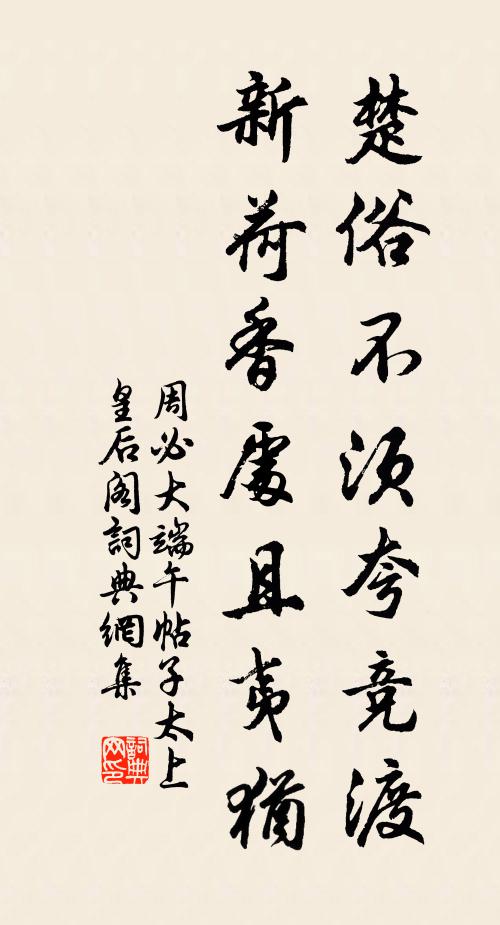 楚俗不須夸竞渡
新荷香處且夷猶
周必大端午帖子太上
皇后阁詞典網集
詞典
网印